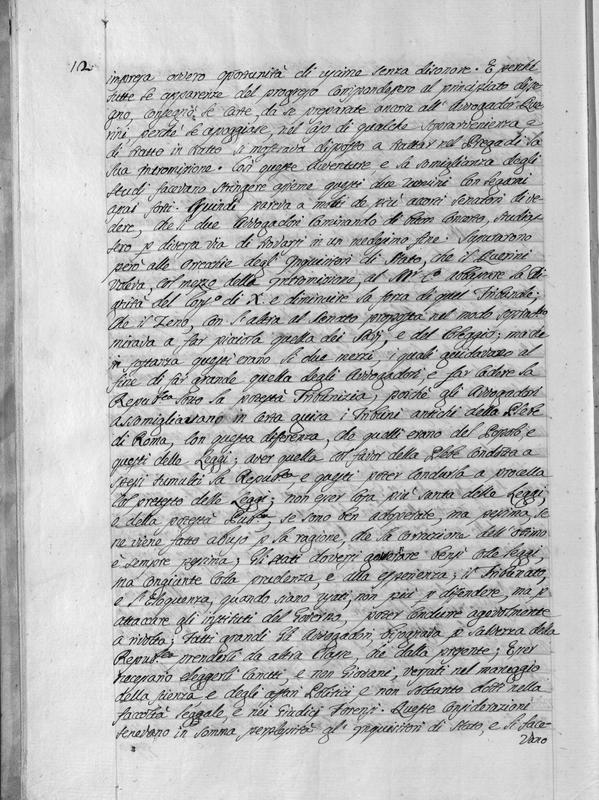 112
impresa ovvero oportunità di uscirne senza disonore. E perchè
tutte le apparenze del progresso corrispondessero al principiato dise-
gno, consegnò le carte, da se preparate ancora all' Avogador Que-
rini perchè le apoggiasse, nel caso di qualche sopravenienza e
di tratto in tratto si mostrava disposto a trattar nel Pregadi la
sua Intromissione. Con queste avventure e la somiglianza degli
studj facevano stringere assieme questi due Uomini con legami
assai forti. Quindi pareva a molti de più accorti senatori di ve-
dere, che li due Avogadori caminando di buon concerto, studias-
sero p diversa via di trovarsi in un medesimo fine. Saputarono
però alle orecchie degli Inquisitori di Stato, che il Querini
voleva, col mezzo della Intromissione, al M: C:o abbassare la Di-
gnità del Cons:o di X. e diminuire la forza di quel Tribunale;
che il Zeno, con l'altra al senato proposta nel modo sopradetto
mirava a far picciola quella dei Savj, e del Colleggio; ma che
in sostanza questi erano li due mezzi, i quali guidavano al
fine di far grande quella degli Avogadori e far cadere la
Repub:ca sotto la potestà Tribunicia; poichè gli Avogadori
assomigliavano in certa guisa i Tribuni antichi della Plebe
di Roma, con questa differenza, che quelli erano del Popolo, e
questi delle Leggi; aver quelli col favor della Plebe condotta a
spessi tumulti la Repub:ca e questi poter condurla a procella
col pretesto delle Leggi; non esser cosa più santa delle Leggi,
e della potestà Pub:ca, se sono ben adoperate, ma pessima, se
ne viene fatto abuso p la ragione, che la corruzione dell' ottimo
è sempre pessima; Gli stati doversi governare bensì colle leggi
ma congiunte colla prudenza, e alla esperienza; il Tribunato,
e l'Eloquenza, quando siano usati, non più p difendere, ma p
attaccare gli instituti del Governo, poter condurre agevolmente
a rivolta; Fatti grandi li Avogadori, bisognava p salvezza della
Repub:ca prenderli da altra Classe, che dalla presente; Esser
necessario eleggerli Canuti, e non Giovani, versati nel maneggio
della pienza e degli affari Politici e non soltanto dotti nella
facoltà leggale, e nei Giudicj Forensi. Queste Considerazioni
tenevano in somma perplessità gl' Inquisitori di Stato, e li face-
vano